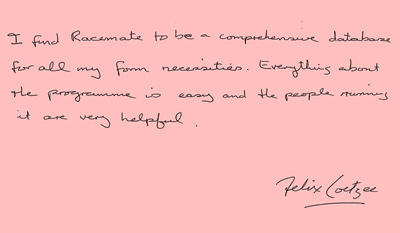 I find Racemate to be a comprehensive database
for all my form necessities. Everything about
the programme is easy and the people running
it are very helpful.
Felix Coetzee